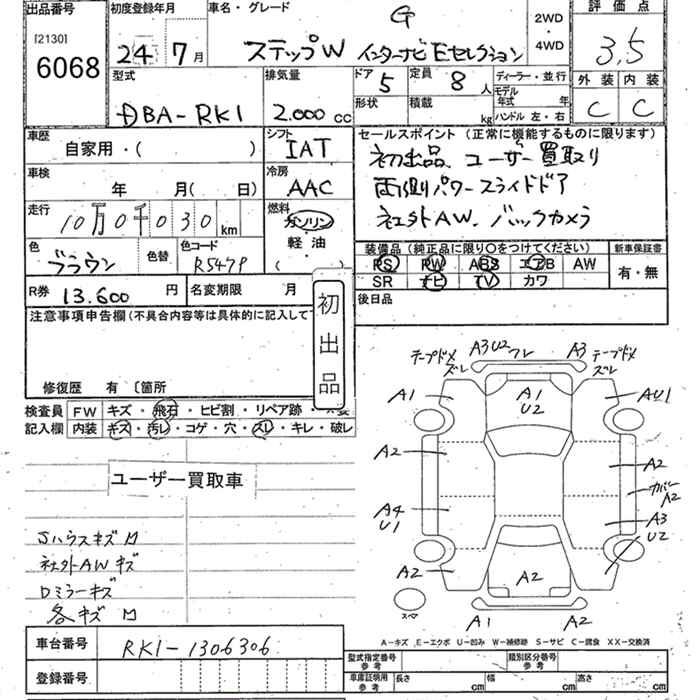 出品番号
[2130]
6068
初度登録年月
24 7月
車名・グレード
G
ステップW インターナビEセレクション
2WD
・
4WD
評価点
3,5
外装 内装
C C
型式
DBA-RK1
排気量
2.000 cc
ドア
5
定員
8人
形状
積載
kg
ディーラー・並行
モデル
年式 年
ハンドル 左・右
車歴
自家用・( )
シフト
IAT
セールスポイント (正常に機能するものに限ります)
初出品 ユーザー買取り
両側パワースライドドア
社外AW バックカメラ
車検
年 月( 日)
冷房
AAC
走行
10万0千030km
燃料
ガソリン
軽油
( )
色
ブラウン
色替
色コード
R547P
装備品 (純正品に限り○をつけてください)
PS PW ABS エアB AW
SR ナビ TV カワ
新車保証書
有・無
R券 13.600円
名変期限 月
後日品
初出品
注意事項申告欄(不具合内容等は具体的に記入して
修復歴 有 〔箇所
検査員
記入欄
FW キズ・飛石・ヒビ割・リペア跡・
内装 キズ・汚レ・コゲ・穴・スレ・キレ・破レ
ユーザー買取車
Sハウスキズ M
社外AWキズ
Dミラーキズ
各キズ M
テープドメ
ズレ
A3U2
フレ
A3
テープドメ
ズレ
A1
A1
U2
AU1
A2
A2
カバー
A2
A4
U1
A3
U2
A2
A2
スペア
A1
A2
A-キズ E-エクボ U-凹み W-補修跡 S-サビ C-腐食 XX-交換済
車台番号
RK1-1306306
登録番号
型式指定番号
参考
類別区分番号
参考
車庫証明用
参考
長さ cm
幅 cm
高さ cm